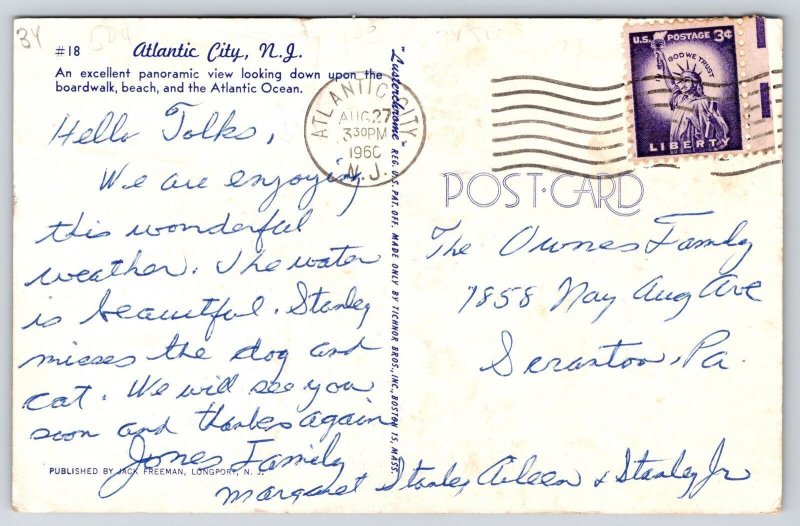 34
#18 Atlantic City, N.J.
An excellent panoramic view looking down upon the
boardwalk, beach, and the Atlantic Ocean.
Hello Folks,
We are enjoying
this wonderful
weather. The water
is beautiful. Stanley
misses the dog and
cat. We will see you
soon and thanks again
Jones Family
Margaret Stanley Aileen & Stanley Jr
PUBLISHED BY JACK FREEMAN, LONGPORT, N. J.
"Lusterchrome" REG. U.S. PAT. OFF. MADE ONLY BY TICHNOR BROS., INC., BOSTON 15, MASS.
ATLANTIC CITY
AUG 27
3 30 PM
1960
N.J.
U.S. POSTAGE 3¢
IN GOD WE TRUST
LIBERTY
POST CARD
The Family
1858 Aug Ave
Scranton, Pa.